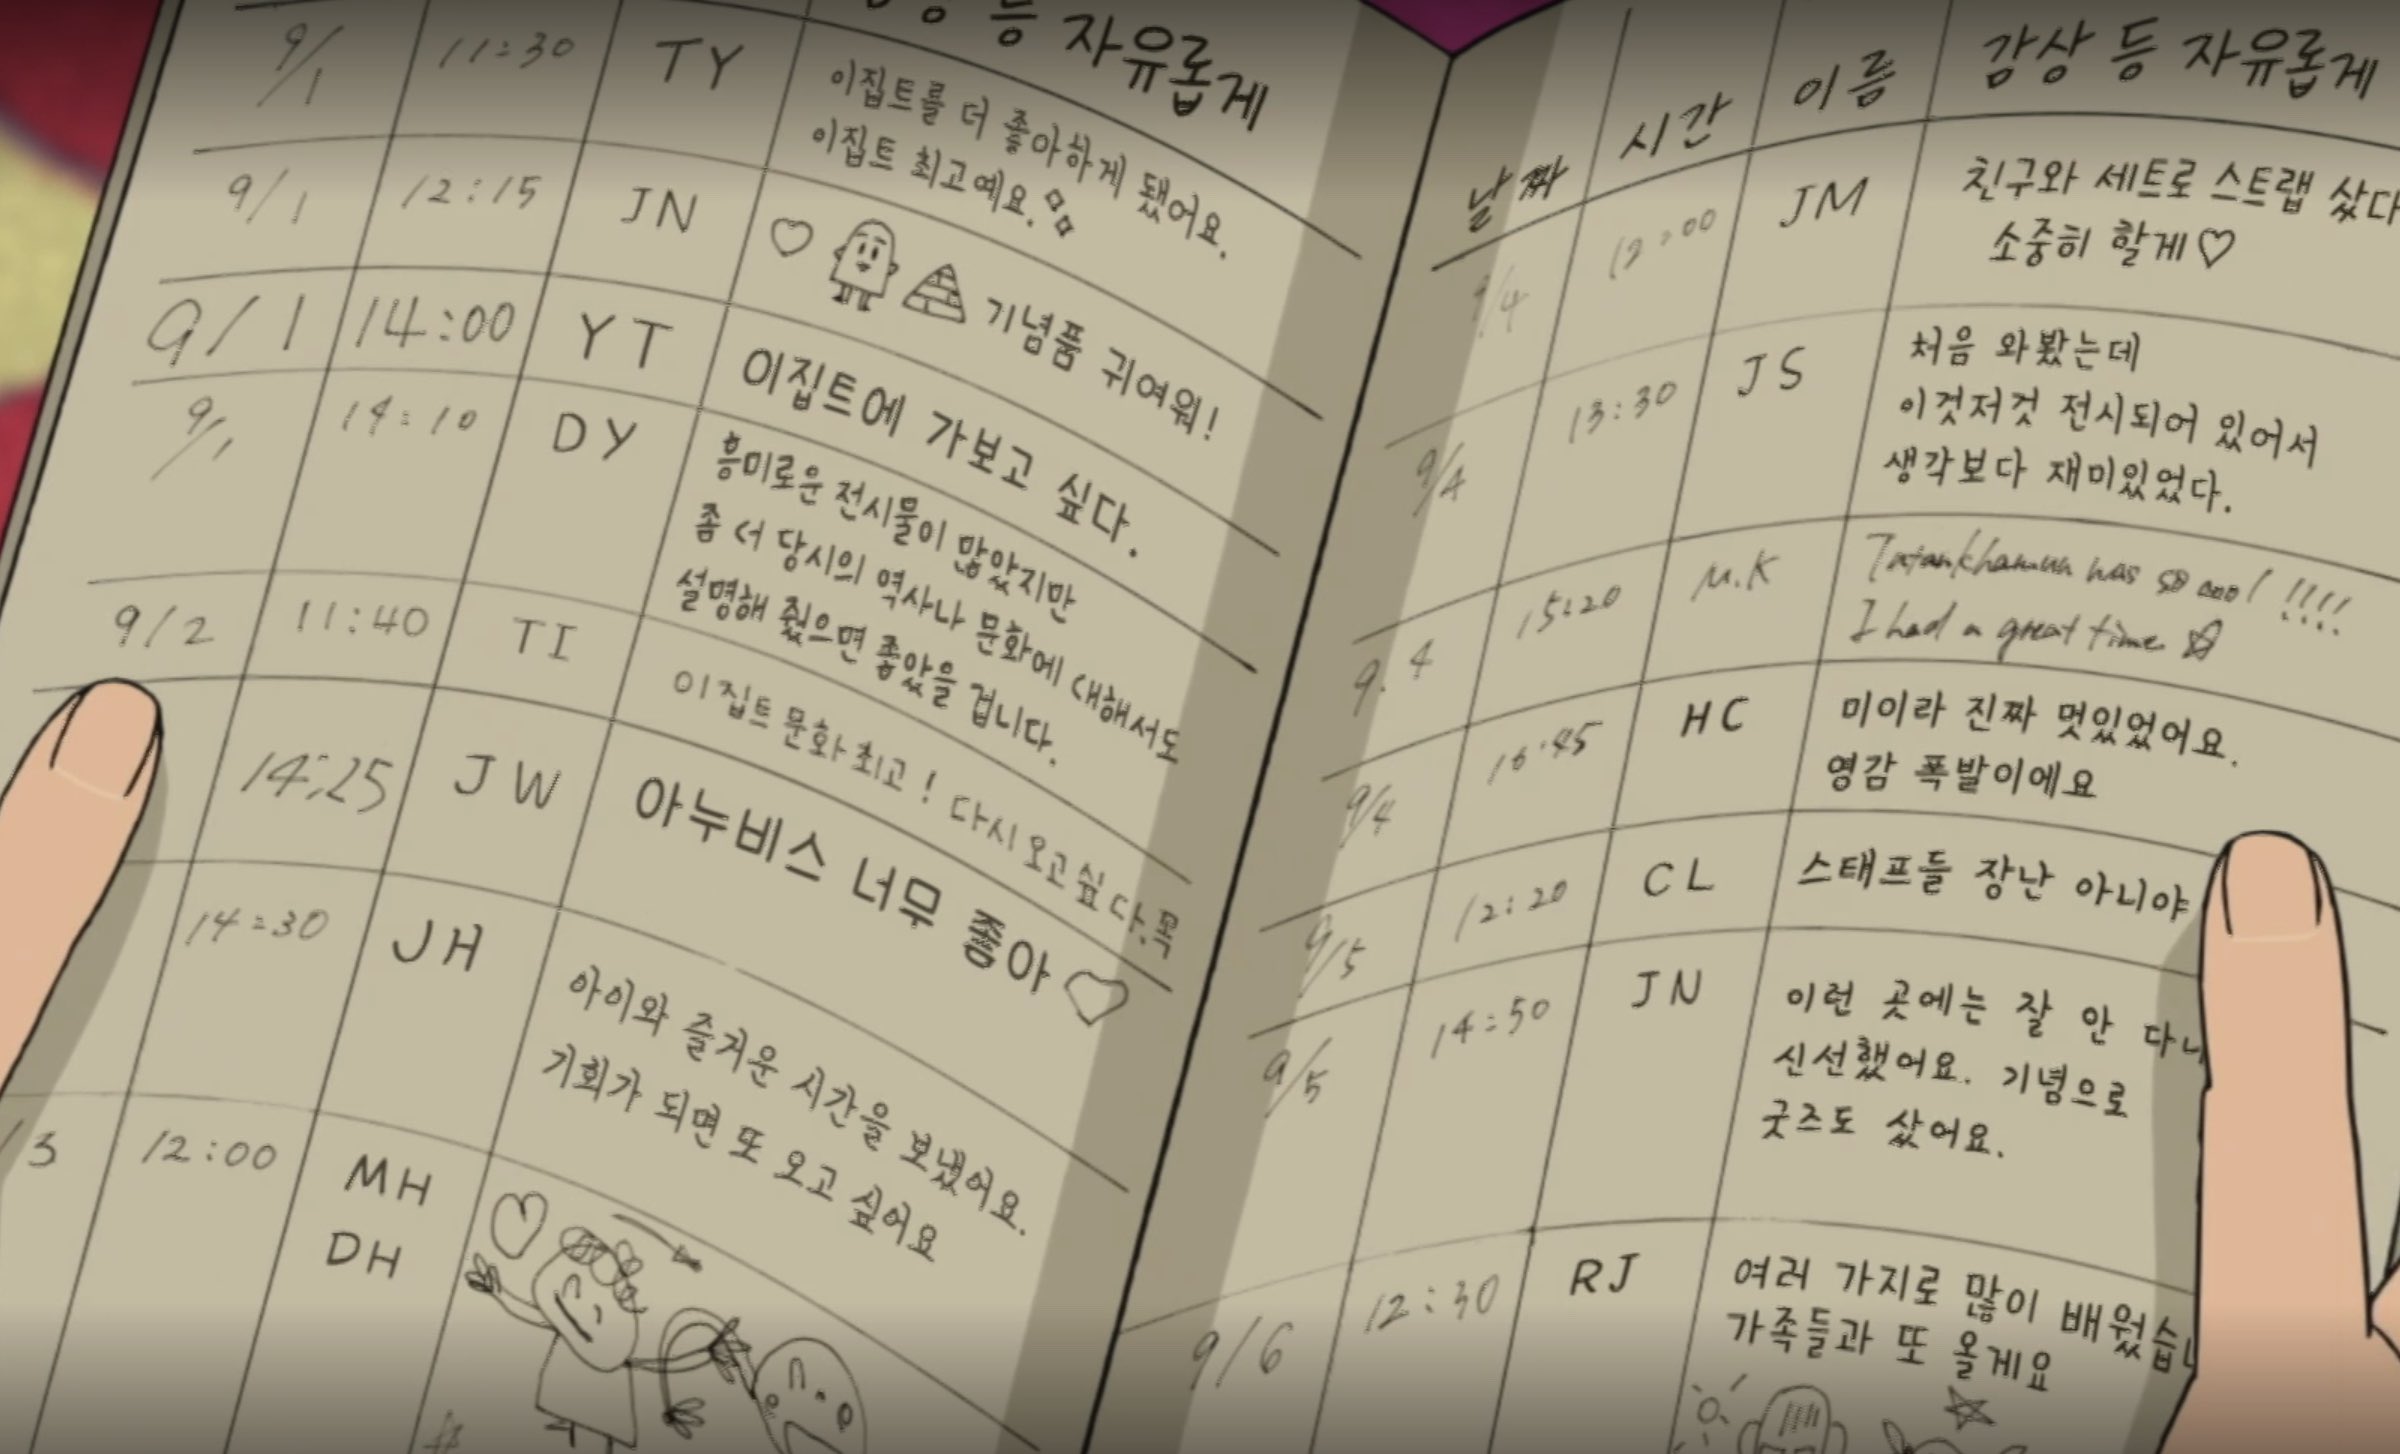 등 자유롭게
9/1 11:30 TY 이집트를 더 좋아하게 됐어요.
이집트 최고예요.
9/1 12:15 JN 기념품 귀여워!
9/1 14:00 YT 이집트에 가보고 싶다.
9/1 14:10 DY 흥미로운 전시물이 많았지만
좀 더 당시의 역사나 문화에 대해서도
설명해 줬으면 좋았을 겁니다.
9/2 11:40 TI 이집트 문화 최고! 다시 오고 싶다.
14:25 JW 아누비스 너무 좋아♡
14:30 JH 아이와 즐거운 시간을 보냈어요.
기회가 되면 또 오고 싶어요
/3 12:00 MH
DH
날짜 시간 이름 감상 등 자유롭게
9/4 12:00 JM 친구와 세트로 스트랩 샀다
소중히 할게♡
9/4 13:30 JS 처음 와봤는데
이것저것 전시되어 있어서
생각보다 재미있었다.
9.4 15:20 M.K Tutankhamun was so cool!!!!
I had a great time ☆
9/4 16:45 HC 미이라 진짜 멋있었어요.
영감 폭발이에요
9/5 12:20 CL 스태프들 장난 아니야
9/5 14:50 JN 이런 곳에는 잘 안
신선했어요. 기념으로
굿즈도 샀어요.
9/6 12:30 RJ 여러 가지로 많이 배웠습
가족들과 또 올게요